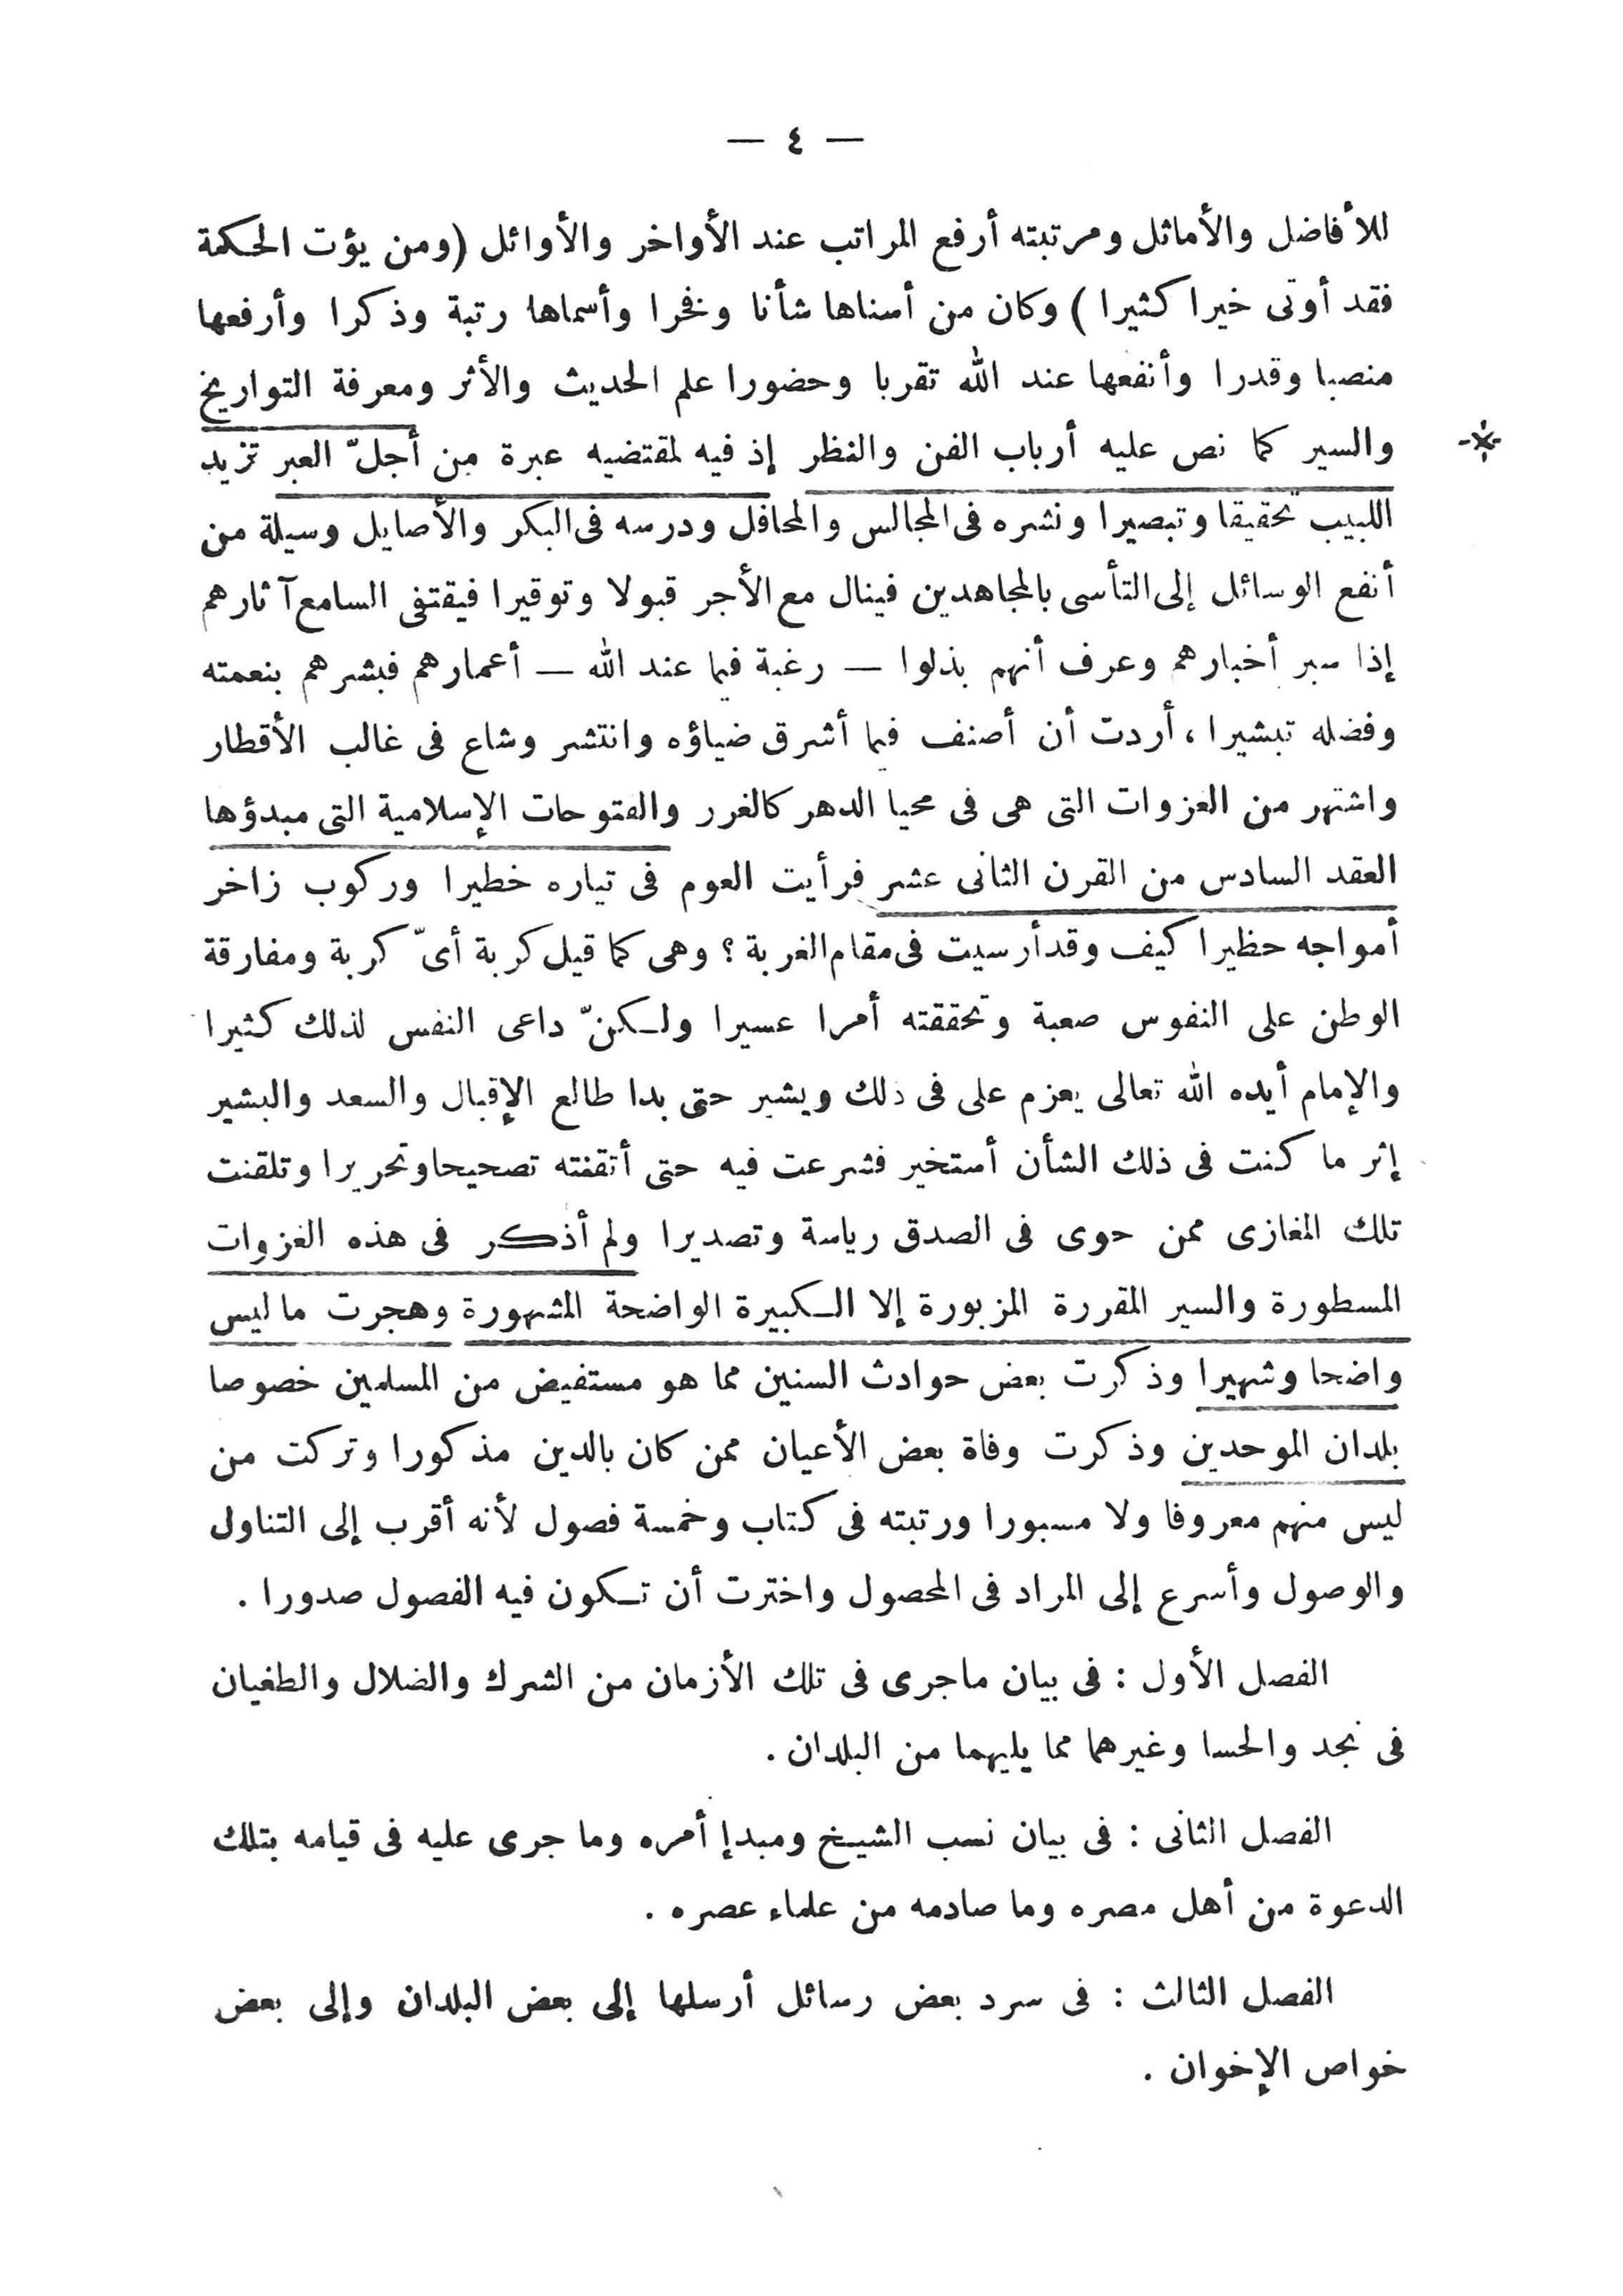 — ٤ —
للأفاضل والأماثل ومرتبته أرفع المراتب عند الأواخر والأوائل (ومن يؤت الحكمة
فقد أوتى خيرا كثيرا) وكان من أسناها شأنا وفخرا وأسماها رتبة وذكرا وأرفعها
منصبا وقدرا وأنفعها عند الله تقربا وحضورا علم الحديث والأثر ومعرفة التواريخ
والسير كما نص عليه أرباب الفن والنظر إذ فيه لمقتضيه عبرة من أجلّ العبر تزيد
اللبيب تحقيقا وتبصيرا ونشره فى المجالس والمحافل ودرسه فى البكر والأصايل وسيلة من
أنفع الوسائل إلى التأسى بالمجاهدين فينال مع الأجر قبولا وتوقيرا فيقتفى السامع آثارهم
إذا سبر أخبارهم وعرف أنهم بذلوا — رغبة فيما عند الله — أعمارهم فبشرهم بنعمته
وفضله تبشيرا، أردت أن أصنف فيما أشرق ضياؤه وانتشر وشاع فى غالب الأقطار
واشتهر من الغزوات التى هى فى محيا الدهر كالغرر والفتوحات الإسلامية التى مبدؤها
العقد السادس من القرن الثانى عشر فرأيت العوم فى تياره خطيرا وركوب زاخر
أمواجه حظيرا كيف وقد أرسيت فى مقام الغربة؟ وهى كما قيل كربة أىّ كربة ومفارقة
الوطن على النفوس صعبة وتحققته أمرا عسيرا ولكنّ داعى النفس لذلك كثيرا
والإمام أيده الله تعالى يعزم على فى ذلك ويشير حتى بدا طالع الإقبال والسعد والبشير
إثر ما كنت فى ذلك الشأن أستخير فشرعت فيه حتى أتقنته تصحيحا وتحريرا وتلقنت
تلك المغازى ممن حوى فى الصدق رياسة وتصديرا ولم أذكر فى هذه الغزوات
المسطورة والسير المقررة المزبورة إلا الكبيرة الواضحة المشهورة وهجرت ما ليس
واضحا وشهيرا وذكرت بعض حوادث السنين مما هو مستفيض من المسلمين خصوصا
بلدان الموحدين وذكرت وفاة بعض الأعيان ممن كان بالدين مذكورا وتركت من
ليس منهم معروفا ولا مسبورا ورتبته فى كتاب وخمسة فصول لأنه أقرب إلى التناول
والوصول وأسرع إلى المراد فى المحصول واخترت أن تكون فيه الفصول صدورا .
الفصل الأول : فى بيان ماجرى فى تلك الأزمان من الشرك والضلال والطغيان
فى نجد والحسا وغيرهما مما يليهما من البلدان .
الفصل الثانى : فى بيان نسب الشيخ ومبدإ أمره وما جرى عليه فى قيامه بتلك
الدعوة من أهل مصره وما صادمه من علماء عصره .
الفصل الثالث : فى سرد بعض رسائل أرسلها إلى بعض البلدان وإلى بعض
خواص الإخوان .